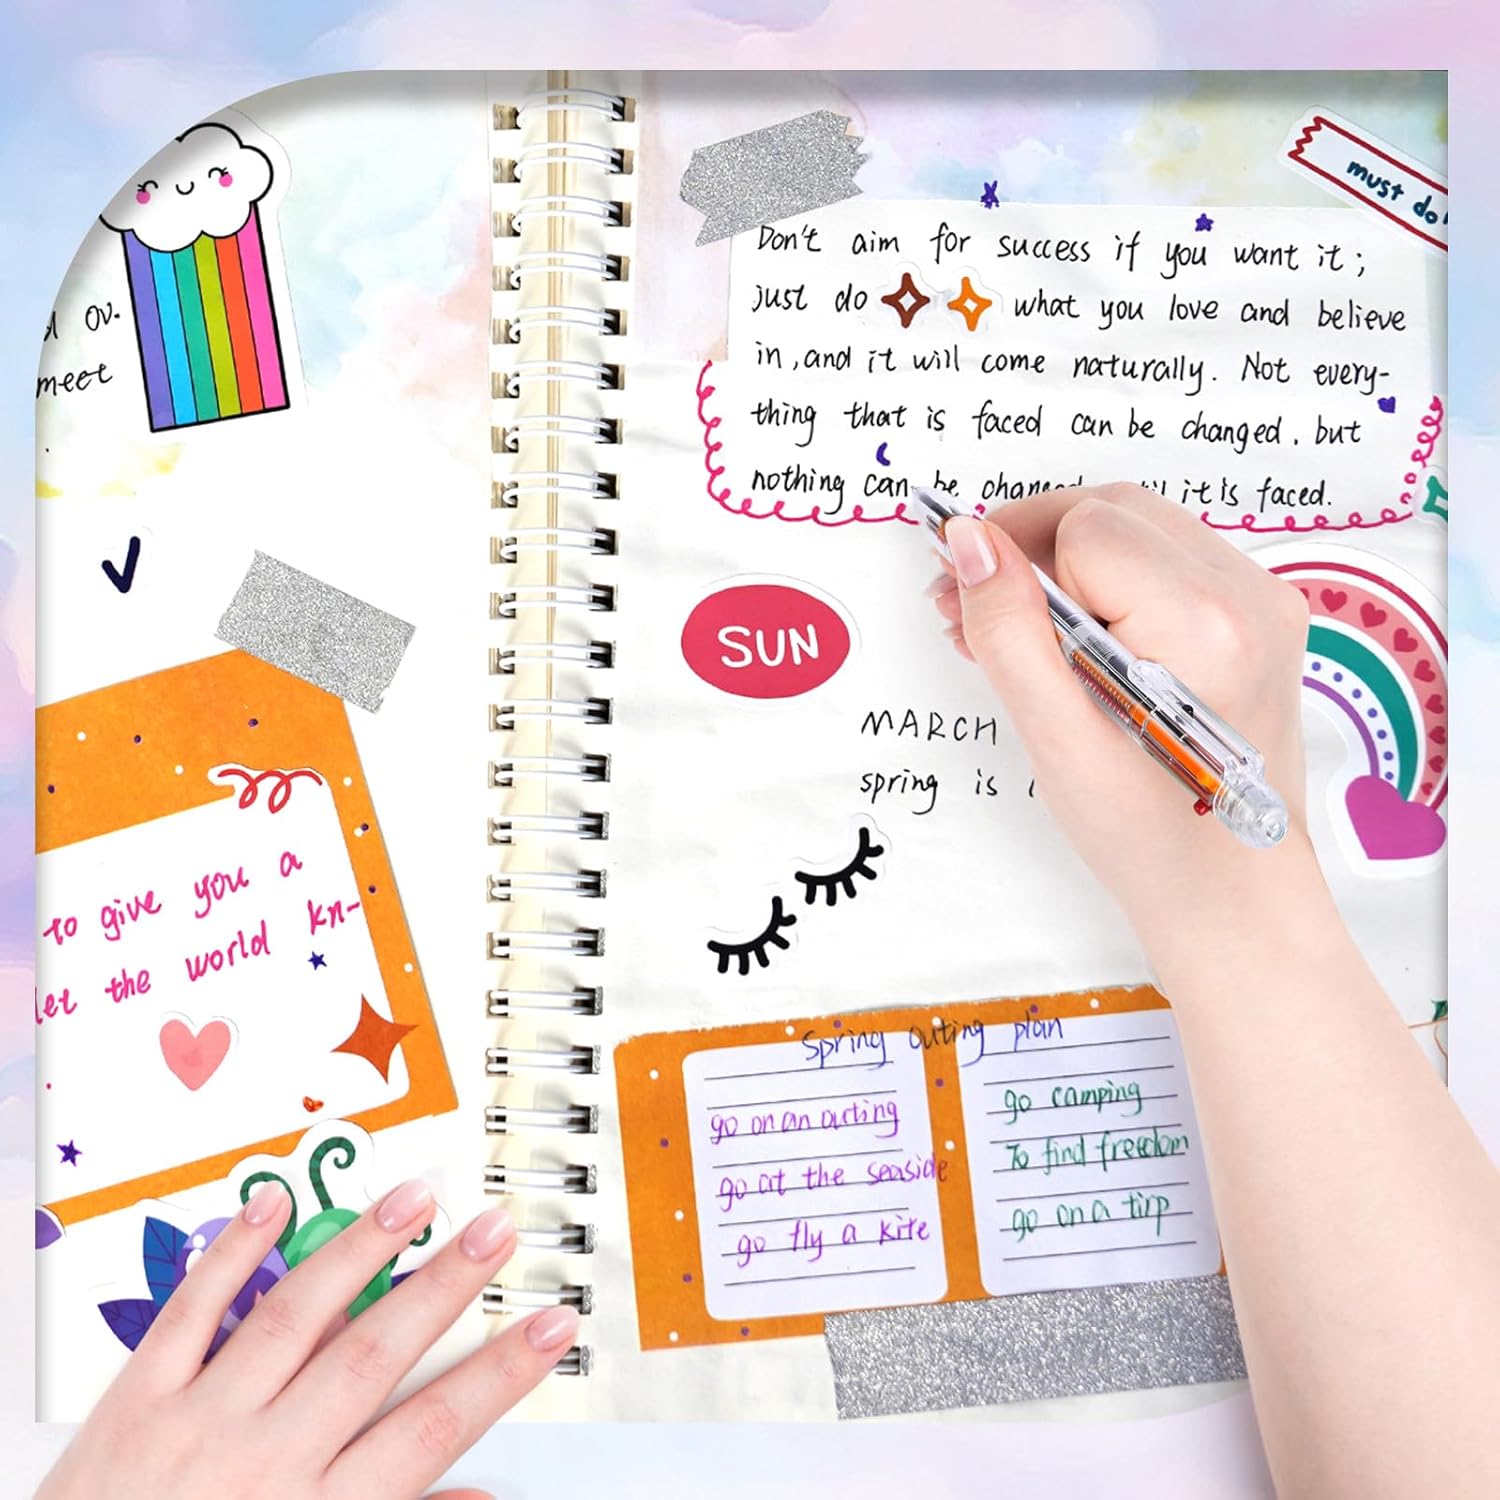 ov.
meet
to give you a
let the world kn-
must do
Don't aim for success if you want it;
just do what you love and believe
in, and it will come naturally. Not every-
thing that is faced can be changed. but
nothing can be it is faced.
SUN
MARCH
spring is
Spring outing plan
go on an outing
go at the seaside
go fly a kite
go camping
To find freedom
go on a tirp